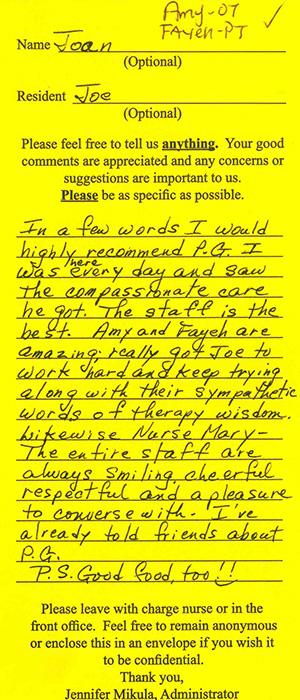 Amy-OT ✓
Fayeh-PT
Name Joan
(Optional)
Resident Joe
(Optional)
Please feel free to tell us anything. Your good
comments are appreciated and any concerns or
suggestions are important to us.
Please be as specific as possible.
In a few words I would
highly recommend P.G. I
was here every day and saw
the compassionate care
he got. The staff is the
best. Amy and Fayeh are
amazing; really got Joe to
work hard and keep trying
along with their sympathetic
words of therapy wisdom.
Likewise Nurse Mary-
The entire staff are
always smiling, cheerful
respectful and a pleasure
to converse with. I've
already told friends about
P.G.
P.S. Good food, too!!
Please leave with charge nurse or in the
front office. Feel free to remain anonymous
or enclose this in an envelope if you wish it
to be confidential.
Thank you,
Jennifer Mikula, Administrator